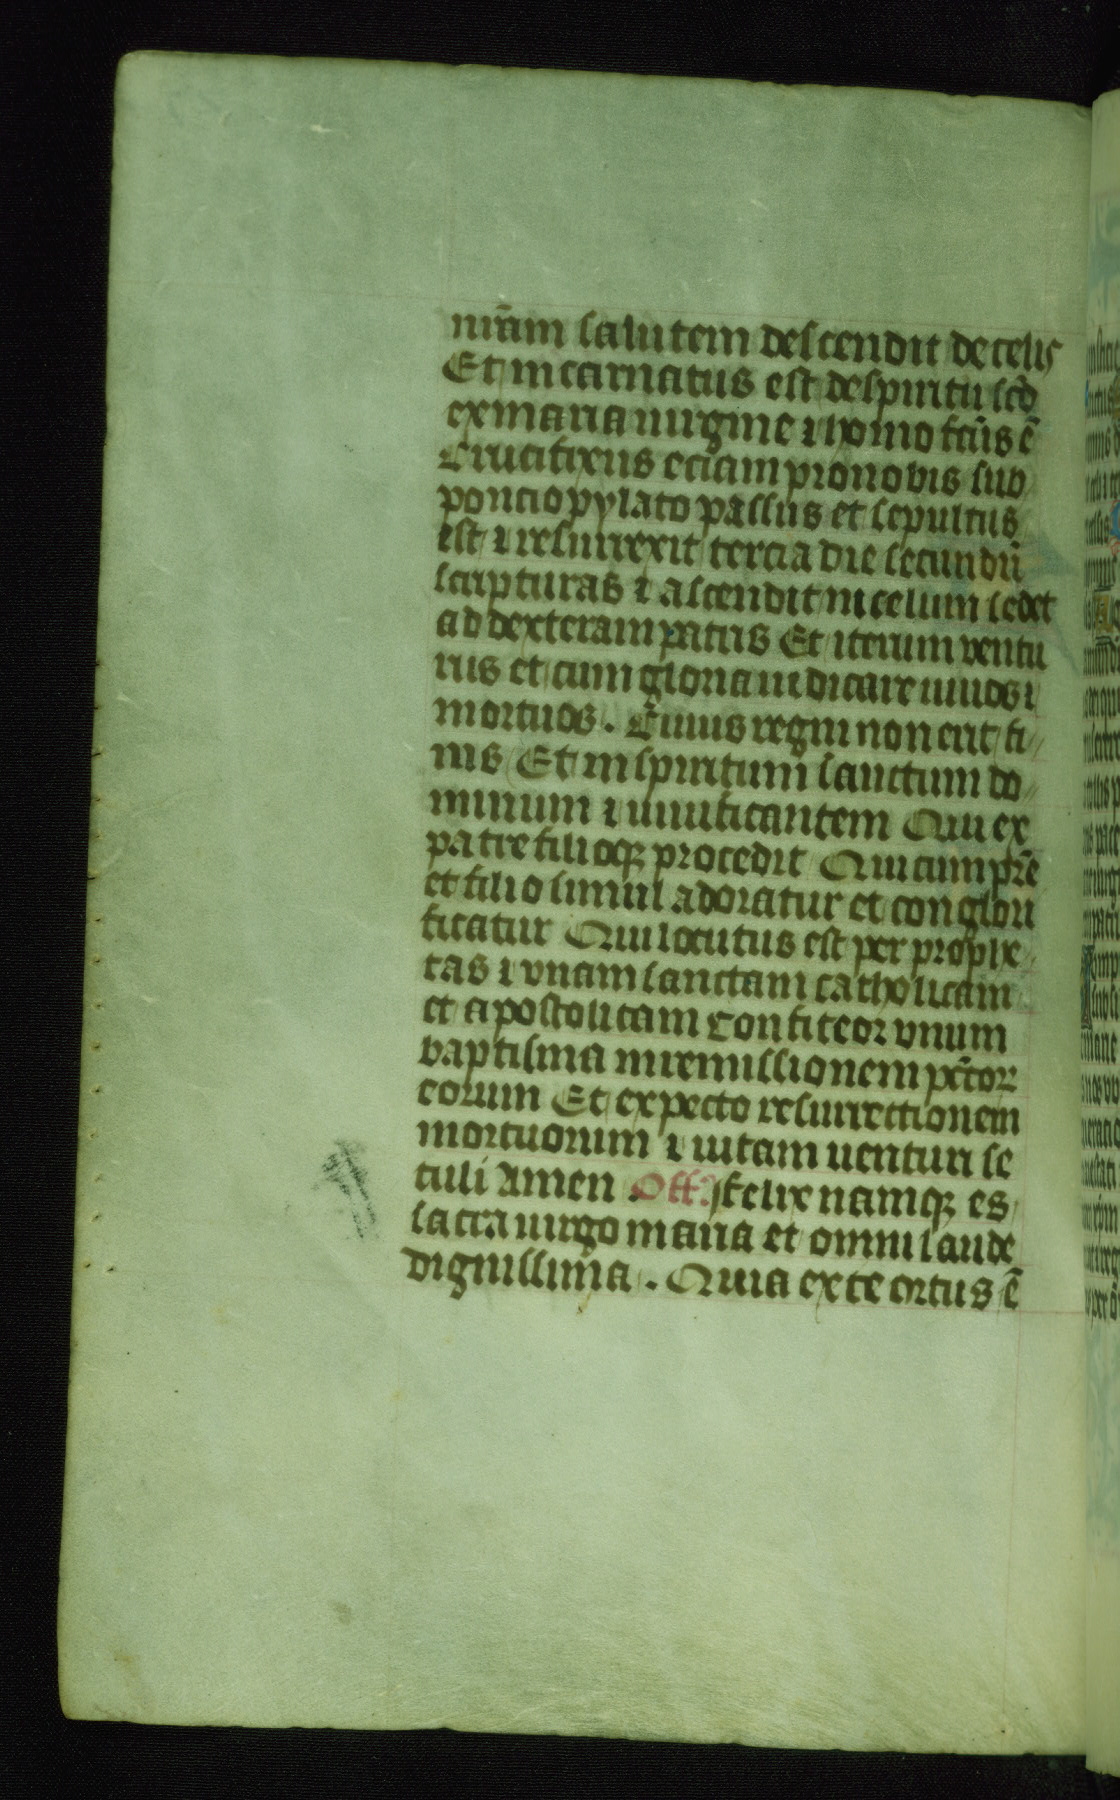 nr̄am salutem descendit de celis
Et incarnatus est de spiritu sc̄o
ex maria uirgine ⁊ homo fc̄us ē
Crucifixus eciam pro nobis sub
poncio pylato passus et sepultus
est ⁊ resurrexit tercia die secundū
scripturas ⁊ ascendit in celum sedet
ad dexteram patris Et iterum ventu
rus et cum gloria iudicare uiuos ⁊
mortuos . Cuius regni non erit fi
nis Et in spiritum sanctum do
minum ⁊ uiuificantem Qui ex
patre filioqꝫ procedit Qui cum pr̄e
et filio simul adoratur et conglori
ficatur Qui locutus est per prophe
tas ⁊ vnam sanctam catholicam
et apostolicam Confiteor vnum
baptisma in remissionem pc̄tor
eorum Et expecto resurrectionem
mortuorum ⁊ uitam uenturi se
culi Amen . Off. Felix namqꝫ es
sacra uirgo maria et omni laude
dignissima . Quia ex te ortus ē